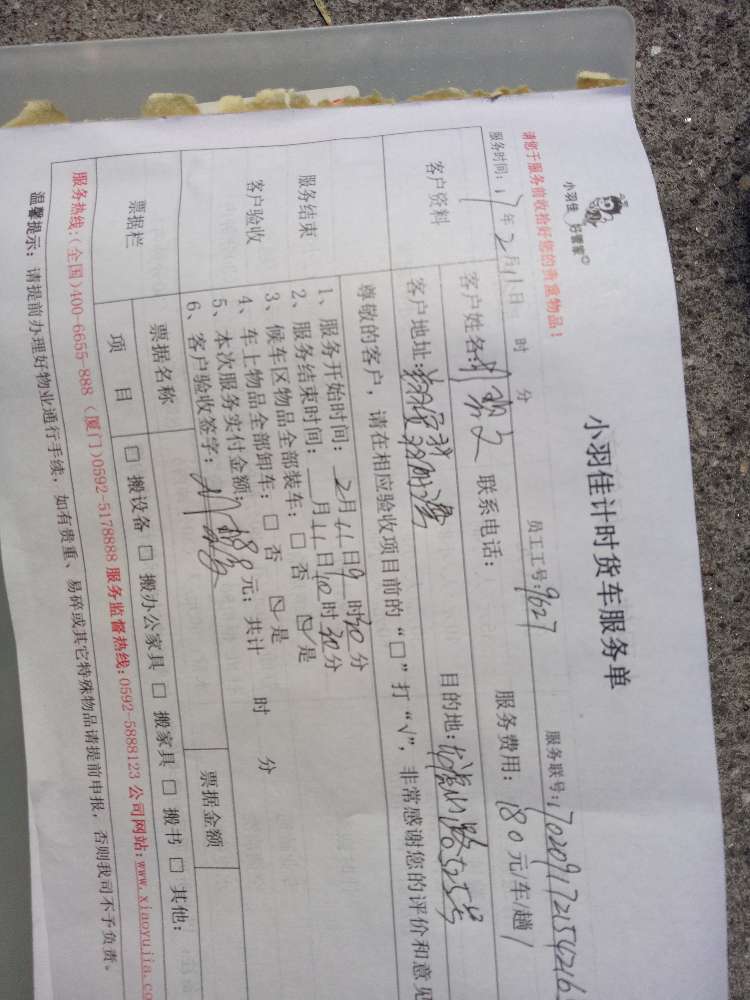 小羽佳 好管家
小羽佳计时货车服务单
请您于服务前收拾好您的贵重物品!
员工工号:9627
服务联号:170209172154216
服务时间:17年2月11日 时 分
服务费用:180元/车/趟
客户资料
客户姓名: 联系电话:
客户地址: 目的地:
尊敬的客户,请在相应验收项目前的“□”打“√”,非常感谢您的评价和意见
服务结束
客户验收
1、服务开始时间:2月11日9时30分
2、服务结束时间: 月11日10时30分
3、候车区物品全部装车:□ 否 ☑ 是
4、车上物品全部卸车:□ 否 ☑ 是
5、本次服务实付金额: 元; 共计 时 分
6、客户验收签字:
票据栏
票据名称 票据金额
项 目 □ 搬设备 □ 搬办公家具 □ 搬家具 □ 搬书 □ 其他:
服务热线:(全国)400-6655-888 (厦门)0592-5178888 服务监督热线:0592-5888123 公司网站:www.xiaoyujia.co
温馨提示:请提前办理好物业通行手续,如有贵重、易碎或其它特殊物品请提前申报,否则我司不予负责。